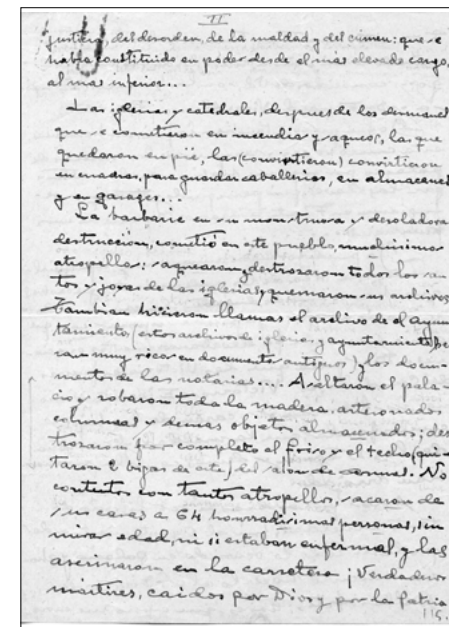 II
justicia, del desorden, de la maldad y del crimen: que se
había constituido en poder desde el mas elevado cargo,
al mas inferior...
Las iglesias y catedrales, despues de los desmanes
que se cometieron en incendios y saqueos, las que
quedaron en pie, las (convirtieron) convirtieron
en cuadras, para guardar caballerias, en almacenes
y en garages...
La barbarie en su monstruosa y desoladora
destrucción, cometió en este pueblo, muchisimos
atropellos: saquearon y destrozaron todos los san-
tos y joyas de las iglesias y quemaron sus archivos
Tambien hicieron llamas el archivo de el Ayun
tamiento (estos archivos de iglesias y ayuntamiento
eran muy ricos en documentos antiguos) y los docu-
mentos de las notarias.... Asaltaron el pala-
cio y robaron toda la madera, artesonados
columnas y demas objetos almacenados; des
trozaron por completo el friso y el techo, (qui-
taron 2 bigas de este) del salon de armas. No
contentos con tantos atropellos, sacaron de
sus casas a 64 honradisimas personas, sin
mirar edad, ni si estaban enfermas, y las
asesinaron en la carretera ¡Verdaderos
mártires, caidos por Dios y por la patria
115.